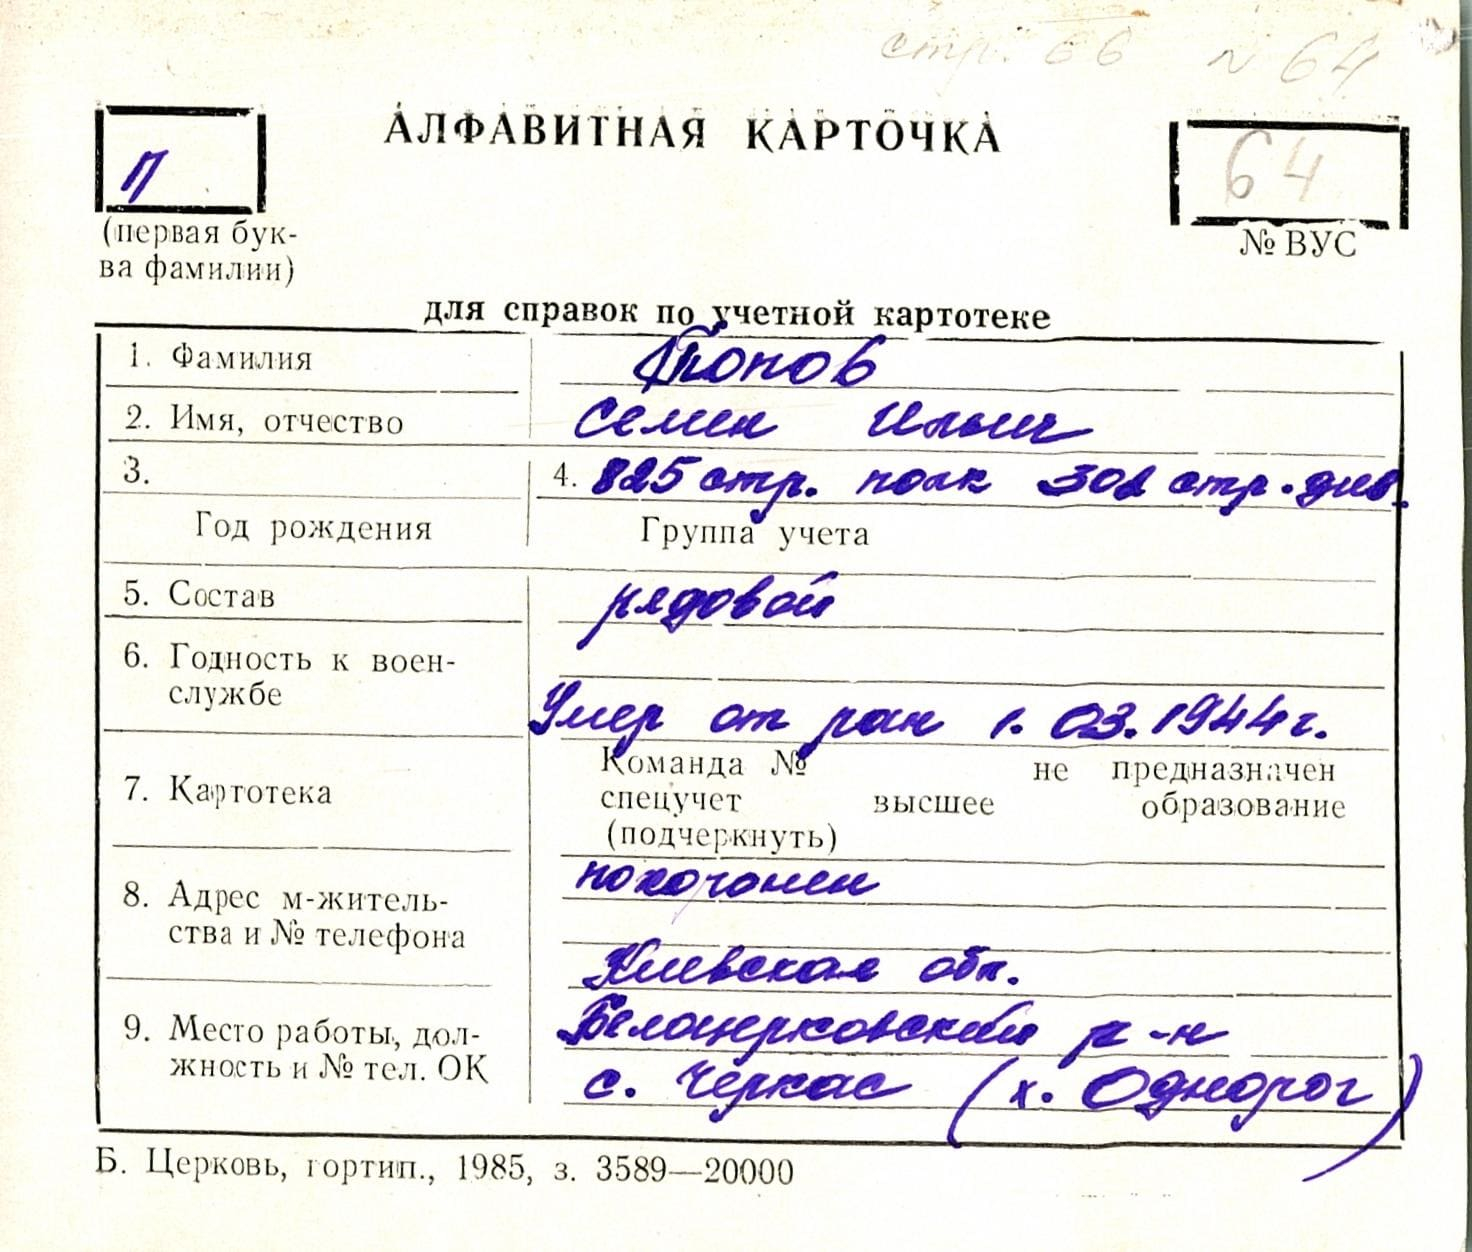 стр. 66 № 64
АЛФАВИТНАЯ КАРТОЧКА
П
64
(первая бук-
ва фамилии)
№ ВУС
для справок по учетной картотеке
1. Фамилия Попов
2. Имя, отчество Семен Ильич
3. 4. 825 стр. полк 302 стр. див.
Год рождения Группа учета
5. Состав рядовой
6. Годность к воен-
службе
Умер от ран 1.03.1944г.
7. Картотека
Команда № не предназначен
спецучет высшее образование
(подчеркнуть)
8. Адрес м-житель-
ства и № телефона
похоронен
Киевская обл.
9. Место работы, дол-
жность и № тел. ОК
Белоцерковский р-н
с. Черкас (х. Однорог)
Б. Церковь, гортип., 1985, з. 3589—20000